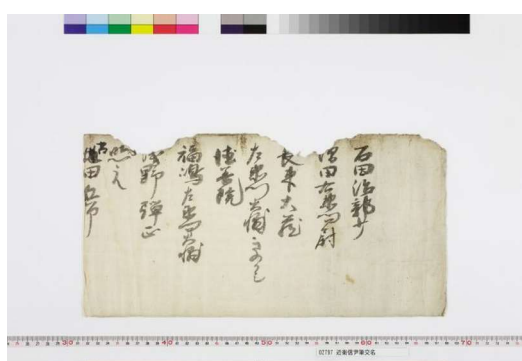 石田治部少
増田右衛門尉
長束大蔵
左衛門大輔
徳善院
福嶋左衛門大輔
浅野弾正
田兵部
02797 近衛信尹筆交名